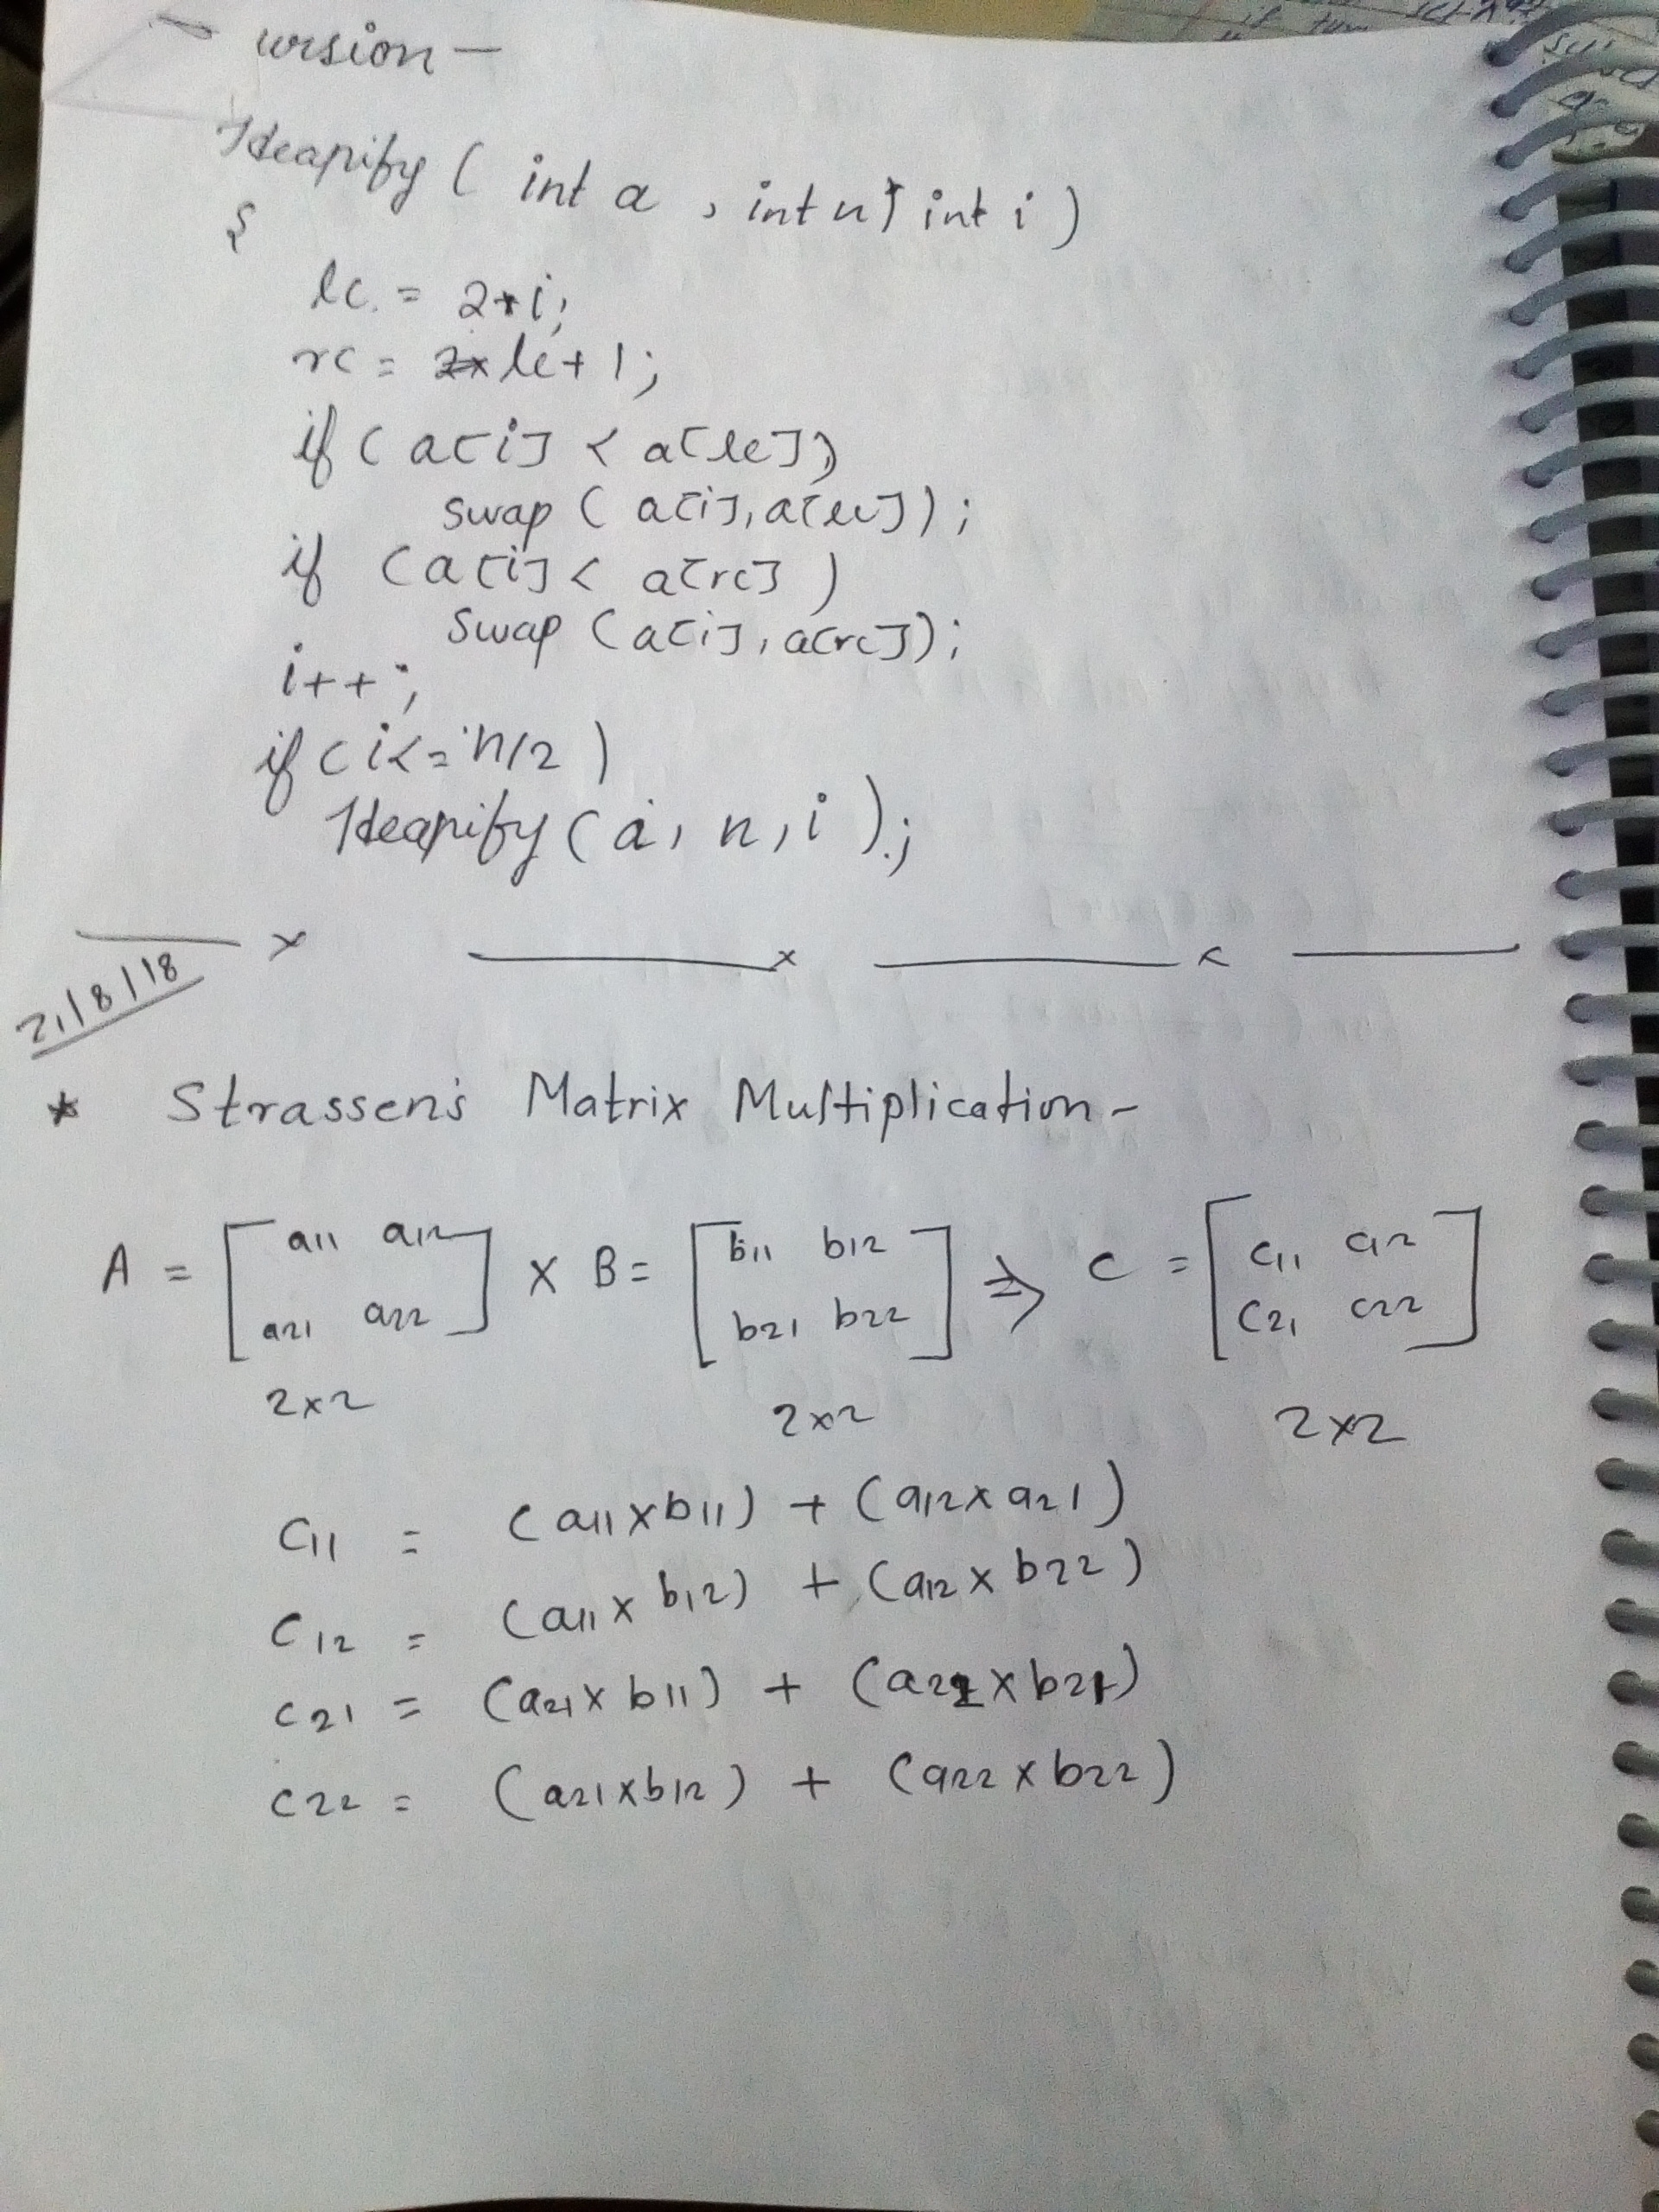 ursion –
Heapify ( int a , int n, int i )
{
lc = 2*i;
rc = lc+1;
if ( a[i] < a[lc])
swap ( a[i], a[lc]);
if (a[i] < a[rc] )
swap (a[i], a[rc]);
i++;
if ( i<=n/2 )
Heapify ( a, n, i );
x x x
21/8/18
* Strassen's Matrix Multiplication –
A = [ a11 a12 ] x B = [ b11 b12 ] ⇒ C = [ c11 c12 ]
a21 a22 b21 b22 c21 c22
2x2 2x2 2x2
c11 = (a11xb11) + (a12xa21)
c12 = (a11x b12) + (a12 x b22)
c21 = (a21x b11) + (a22 x b21)
c22 = (a21xb12) + (a22 x b22)